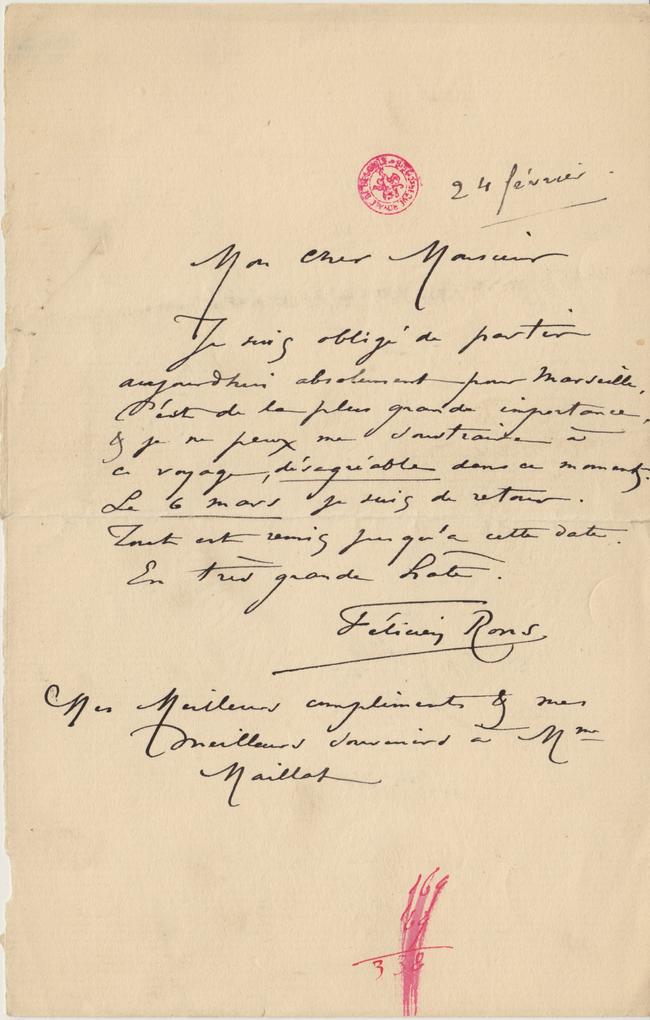 24 février.
Mon cher Monsieur
Je suis obligé de partir
aujourd'hui absolument pour Marseille,
C'est de la plus grande importance,
& je ne peux me soustraire à
ce voyage, désagréable dans ce moment.
Le 6 mars je suis de retour.
Tout est remis jusqu'à cette date.
En très grande hâte.
Félicien Rops
Mes Meilleurs compliments & mes
meilleurs souvenirs à Mme
Maillat
169
338